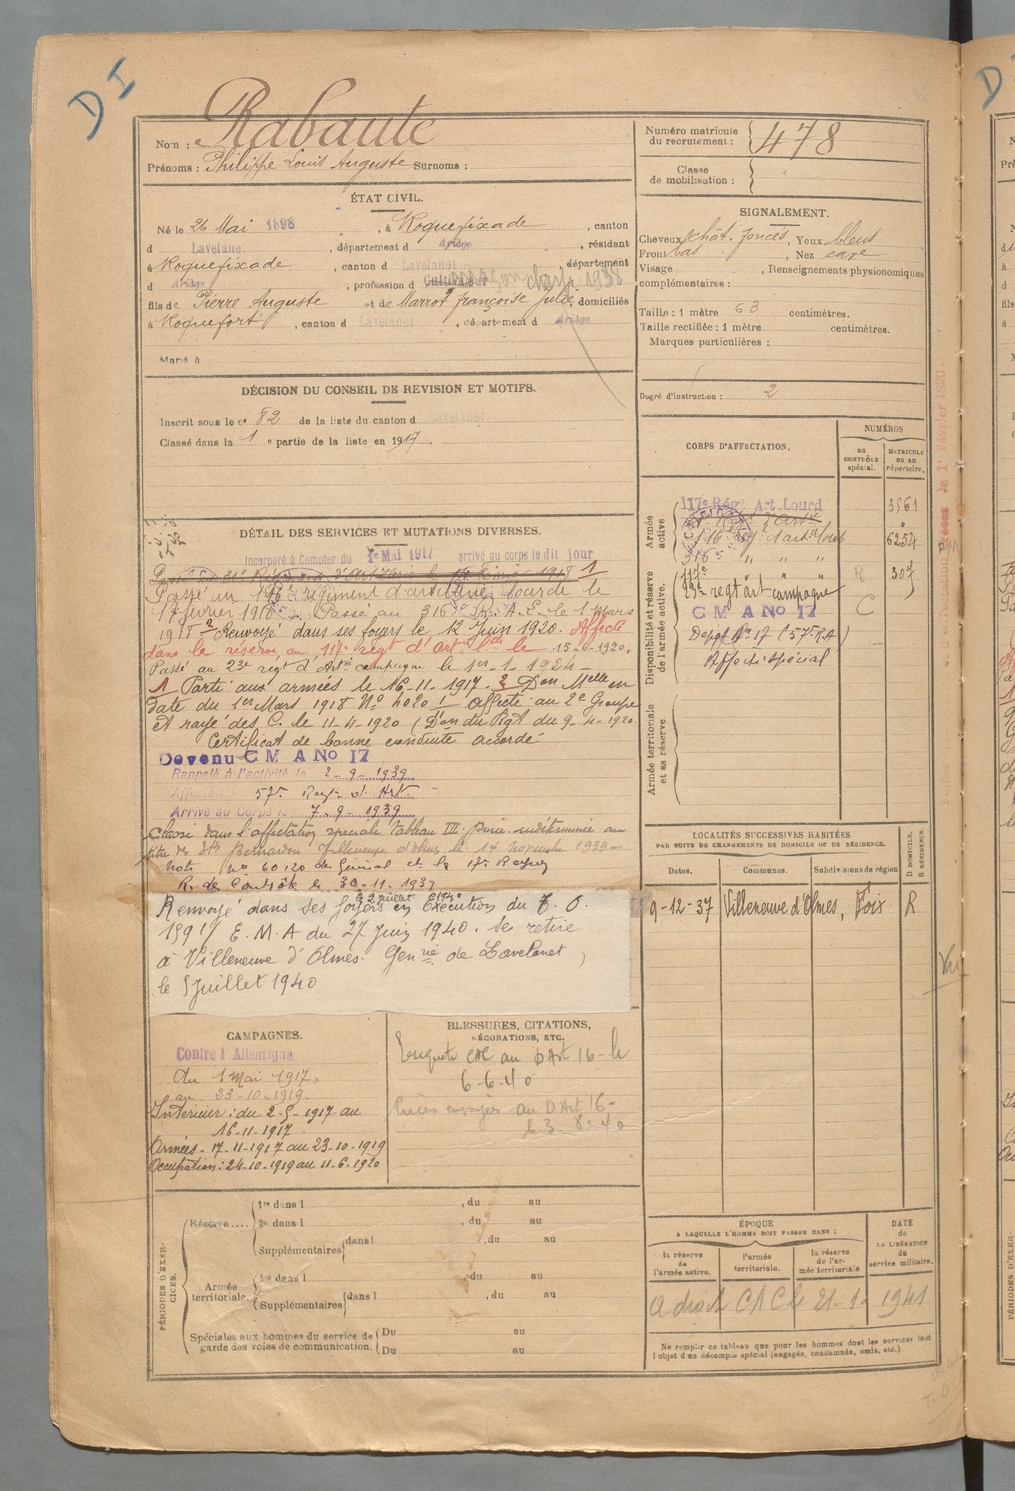 D I
Nom : Rabaute
Prénoms : Philippe Louis Auguste Surnoms :
Numéro matricule du recrutement : 478
Classe de mobilisation :
ÉTAT CIVIL.
Né le 26 Mai 1898, à Roquefixade, canton
d Lavelanet, département d Ariège, résident
à Roquefixade, canton d Lavelanet, département
d Ariège, profession d Cultivateur 1938
fils de Pierre Auguste et de Marrot françoise julie, domiciliés
à Roquefort, canton d Lavelanet, département d Ariège
Marié à
SIGNALEMENT.
Cheveux chât. foncés, Yeux bleus
Front bas, Nez cave
Visage , Renseignements physionomiques
complémentaires :
Taille : 1 mètre 63 centimètres.
Taille rectifiée : 1 mètre centimètres.
Marques particulières :
Degré d'instruction : 2
DÉCISION DU CONSEIL DE REVISION ET MOTIFS.
Inscrit sous le no 82 de la liste du canton d Lavelanet
Classé dans la 1 e partie de la liste en 1917.
DÉTAIL DES SERVICES ET MUTATIONS DIVERSES.
Incorporé à Compter du 1er Mai 1917 arrivé au corps le dit jour
1
Passé au régiment d'artillerie lourde le
1er février 1918. Passé au 316e R.A.L. le 1 Mars
1918 2 Renvoyé dans ses foyers le 12 juin 1920. Affecté
dans la réserve au 117e regt d'art lde le 15-6-1920.
Passé au 23e regt d'Artie campagne le 1er-1-1924-
1 Parti aux armées le 16-11-1917. 2 Don Mlle en
date du 1er Mars 1918 No 4020 ! affecté au 2e Groupe
et rayé des C. le 11-4-1920 (Don du Regt du 9-4-1920
Certificat de bonne conduite accordé
Devenu C M A No 17
Rappelé à l'activité le 2-9-1939
57e Regt d'Art.
Arrivé au Corps le 7-9-1939
Classé dans l'affectation spéciale Tableau III. Durée indéterminée au
titre de Ets Bernardou Villeneuve d'Olmes le 14 novembre 1939-
Note (no 60120 du Général et la 17e Region
R. de Contrôle le 30-11-1939
le 2 juillet 1940
Renvoyé dans ses foyers en Exécution du T.O.
1591/ E.M.A du 27 juin 1940. Se retire
à Villeneuve d'Olmes. Genrie de Lavelanet,
le 5 juillet 1940
CORPS D'AFFECTATION.
NUMÉROS
AU CONTRÔLE spécial.
MATRICULE ou au répertoire.
Armée active
117e Rég. Art. Lourd 3861
116e Rgt d'art lourd 6254
316e " " "
Disponibilité et réserve de l'armée active.
117e R 307
23e regt art campagne
C M A No 17 C
Dépôt No 17 (57e RA)
Affecté spécial
Armée territoriale et sa réserve
LOCALITÉS SUCCESSIVES HABITÉES
PAR SUITE DE CHANGEMENTS DE DOMICILE OU DE RÉSIDENCE.
Dates. Communes. Subdivisions de région D DOMICILE. R RÉSIDENCE.
9-12-37 Villeneuve d'Olmes, Foix R
CAMPAGNES.
Contre l'Allemagne
du 1 Mai 1917.
au 23-10-1919.
Intérieur : du 2-5-1917 au
16-11-1917
Armées - 17-11-1917 au 23-10-1919
Occupation : 24-10-1919 au 11-6-1920
BLESSURES, CITATIONS,
DÉCORATIONS, ETC.
Enquête CAC au D Art 16 - le
6-6-40
Pièces envoyées au D Art 16 -
le 3-8-40
PÉRIODES D'EXERCICES.
Réserve.... 1re dans l , du au
2e dans l , du au
Supplémentaires dans l , du au
Armée territoriale. 1re dans l , du au
Supplémentaires dans l , du au
Spéciales aux hommes du service de
garde des voies de communication. Du au
Du au
ÉPOQUE
A LAQUELLE L'HOMME DOIT PASSER DANS :
la réserve de l'armée active.
l'armée territoriale.
la réserve de l'armée territoriale
DATE de LA LIBÉRATION du service militaire.
a droit CAC le 21-1-1941
Ne remplir ce tableau que pour les hommes dont les services font
l'objet d'un décompte spécial (engagés, condamnés, omis, etc.)